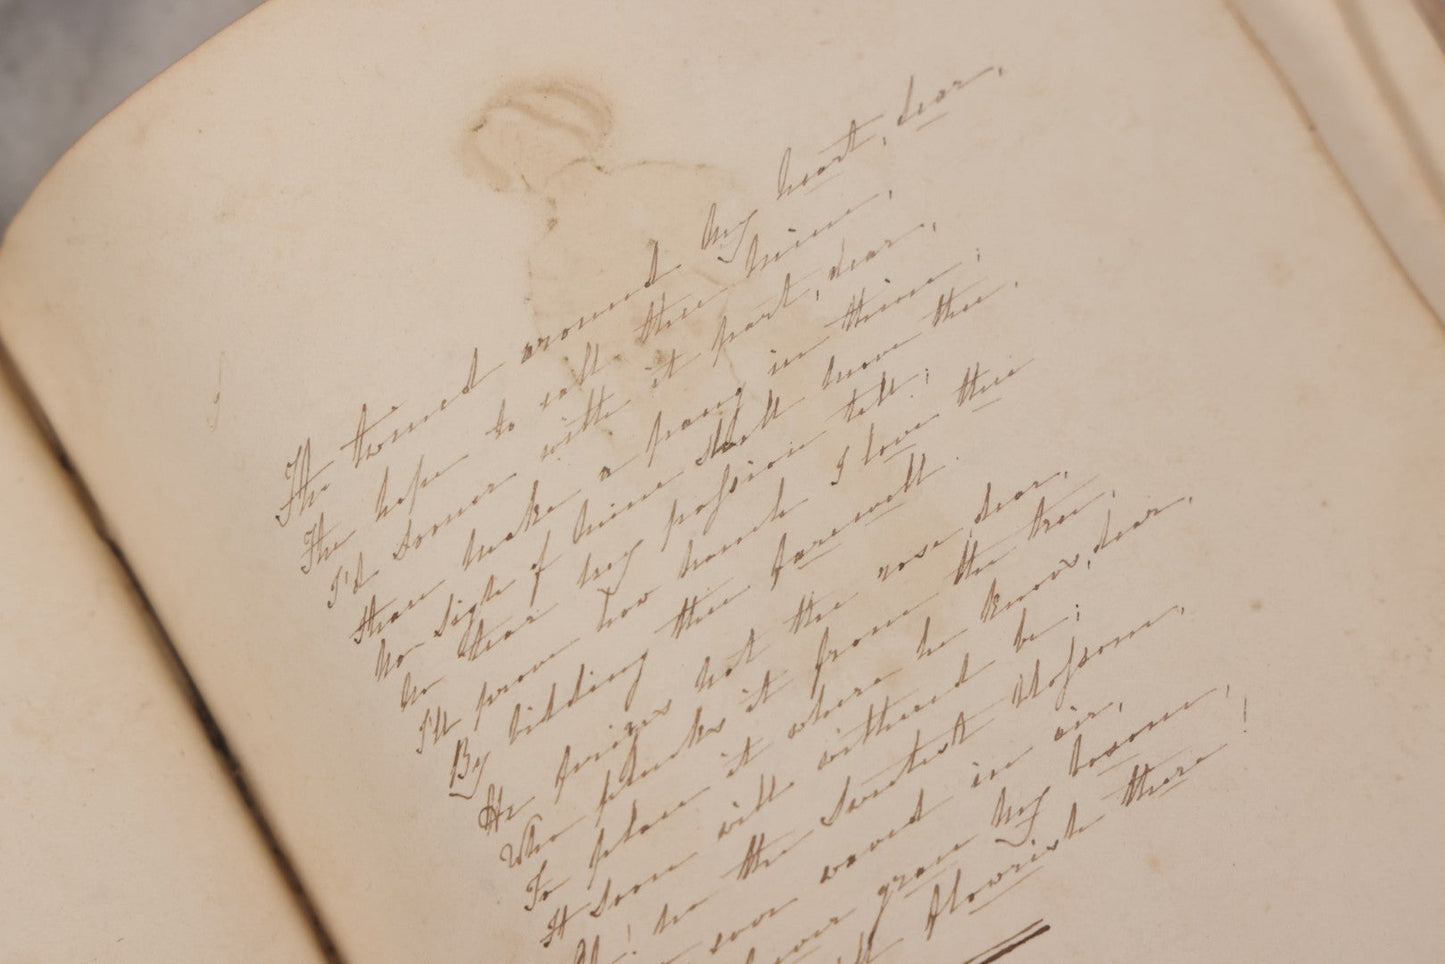 It twined around my heart, dear,
The hope to call thee mine,
I'd sooner with it part, dear,
Than make a pang in thine;
No sigh of mine shall move thee,
No tear my passion tell;
I'll prove how much I love thee
By bidding thee farewell.
He prizes not the rose, dear,
Who plucks it from the tree,
To place it where he knows, dear,
It soon will withered be;
Ah! no the sweetest blossom,
ever waved in air,
never grace my bosom,
flourish there!